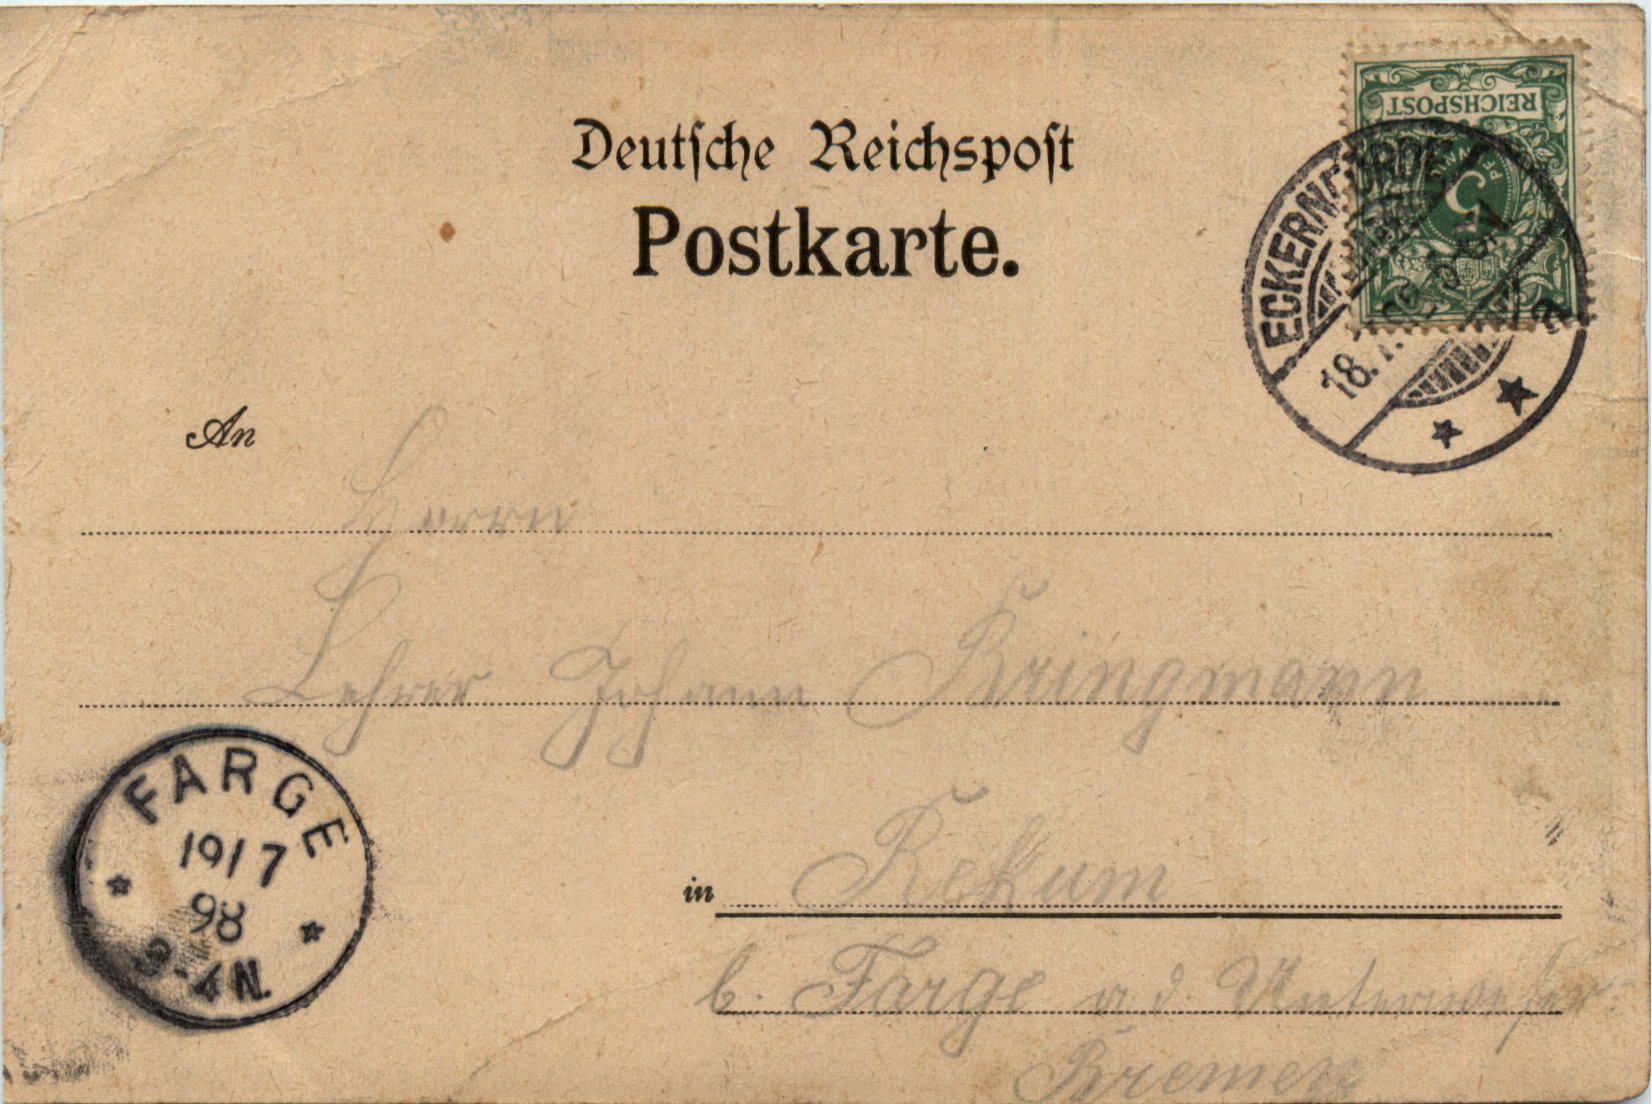 Deutsche Reichspost
Postkarte.
REICHSPOST
5
ECKERNFÖRDE
18.7.98. 3-5N
a
An
Herrn
Lehrer Johann Bringmann
in Rekum
b. Farge a. d. Unterweser
Bremen
FARGE
19/7
98
3-4N.